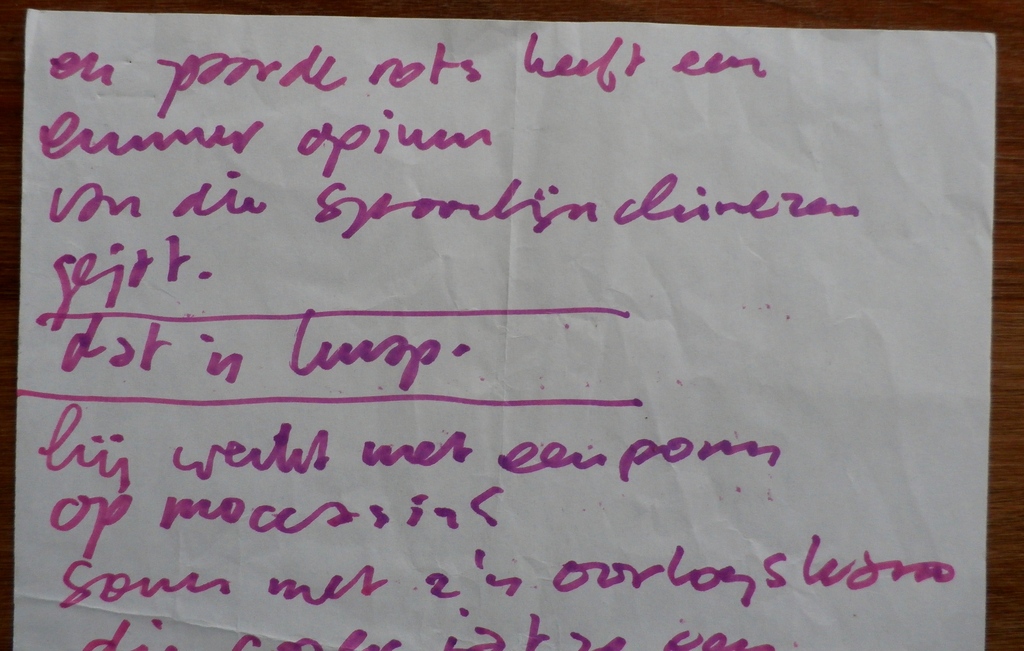 en paarde rots heeft een
emmer opium
van die spoorlijn chinezen
gejat.
dat is knap.
hij werkt met een pony
op mocassins
soms met z'n oorlogskano